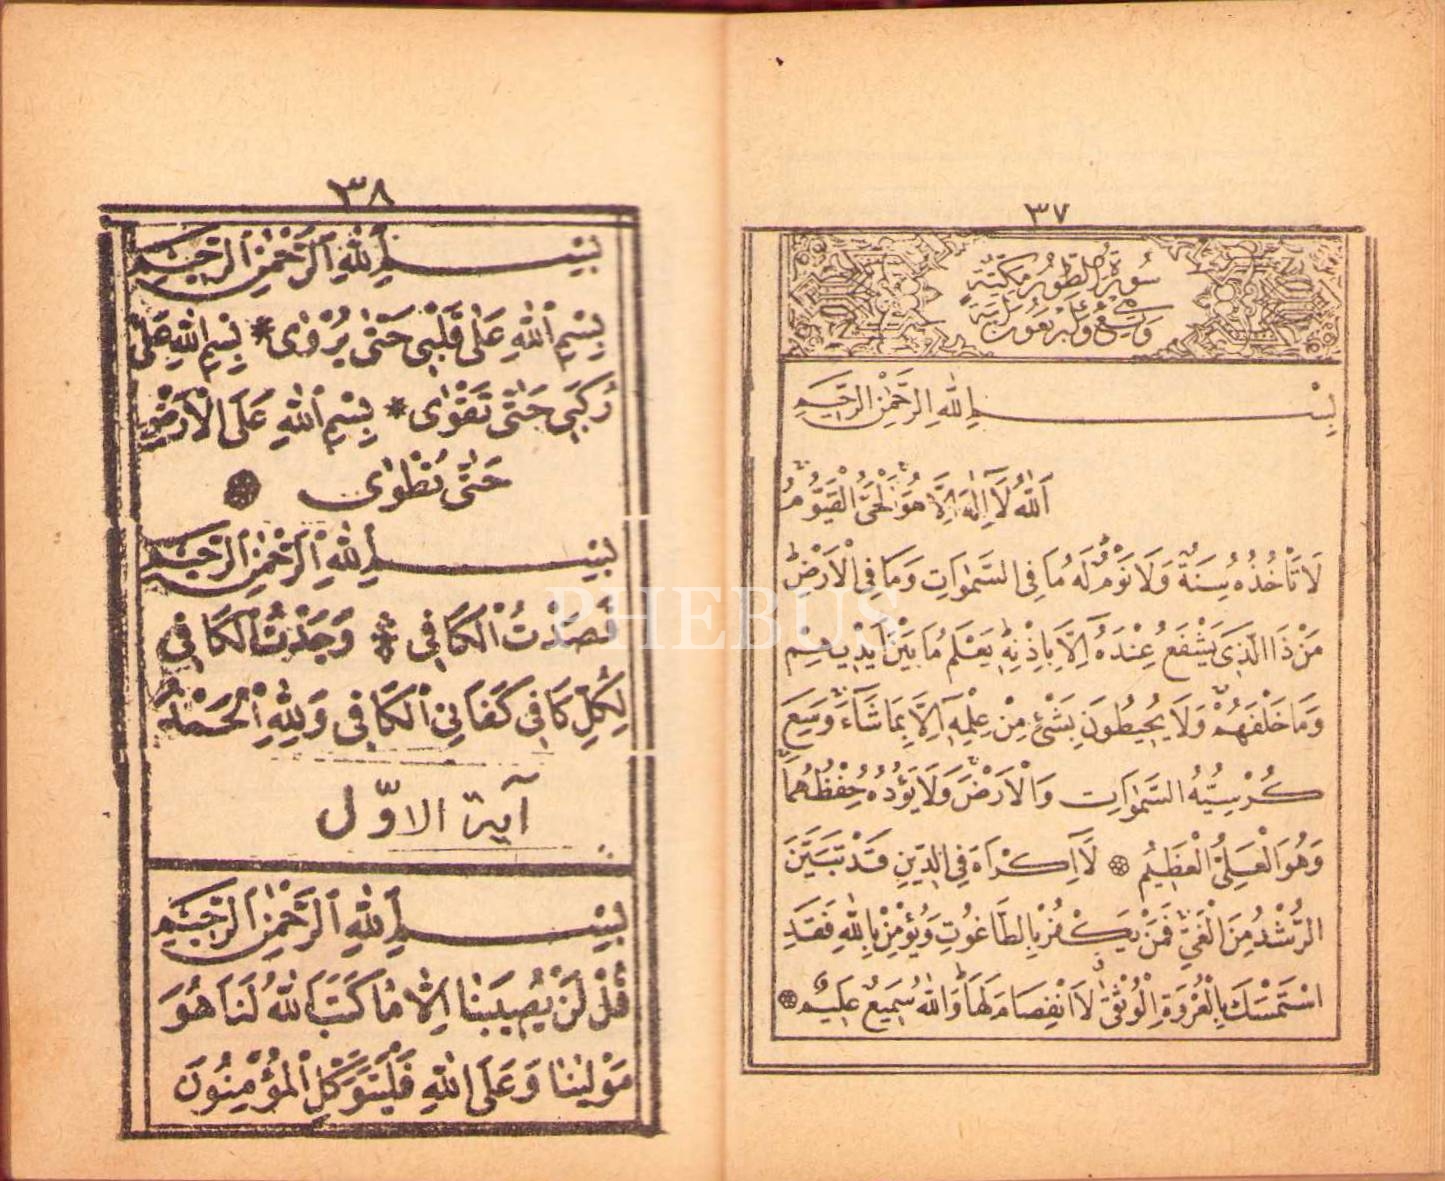 ٣٧
سورة الطور مكية
وهي تسع وأربعون آية
بِسْمِ اللهِ الرَّحْمٰنِ الرَّحِيمِ
اَللّٰهُ لَا اِلٰهَ اِلَّا هُوَ الْحَيُّ الْقَيُّومُ
لَا تَأْخُذُهُ سِنَةٌ وَلَا نَوْمٌ لَهُ مَا فِي السَّمٰوَاتِ وَمَا فِي الْاَرْضِ
مَنْ ذَا الَّذِي يَشْفَعُ عِنْدَهُ اِلَّا بِاِذْنِهِ يَعْلَمُ مَا بَيْنَ اَيْدِيهِمْ
وَمَا خَلْفَهُمْ وَلَا يُحِيطُونَ بِشَيْءٍ مِنْ عِلْمِهِ اِلَّا بِمَا شَاءَ وَسِعَ
كُرْسِيُّهُ السَّمٰوَاتِ وَالْاَرْضَ وَلَا يَؤُدُهُ حِفْظُهُمَا
وَهُوَ الْعَلِيُّ الْعَظِيمُ ۞ لَا اِكْرَاهَ فِي الدِّينِ قَدْ تَبَيَّنَ
الرُّشْدُ مِنَ الْغَيِّ فَمَنْ يَكْفُرْ بِالطَّاغُوتِ وَيُؤْمِنْ بِاللهِ فَقَدِ
اسْتَمْسَكَ بِالْعُرْوَةِ الْوُثْقٰى لَا انْفِصَامَ لَهَا وَاللهُ سَمِيعٌ عَلِيمٌ ۞
٣٨
بِسْمِ اللهِ الرَّحْمٰنِ الرَّحِيمِ
بِسْمِ اللهِ عَلٰى قَلْبِي حَتّٰى يُرْوٰى * بِسْمِ اللهِ عَلٰى
رُكَبِي حَتّٰى تَقْوٰى * بِسْمِ اللهِ عَلَى الْاَرْضِ
حَتّٰى تُطْوٰى ۞
بِسْمِ اللهِ الرَّحْمٰنِ الرَّحِيمِ
قَصَدْتُ الْكَافِي * وَجَدْتُ الْكَافِي
لِكُلٍّ كَافِي كَفَانِيَ الْكَافِي وَلِلّٰهِ الْحَمْدُ
آية الاوّل
بِسْمِ اللهِ الرَّحْمٰنِ الرَّحِيمِ
قُلْ لَنْ يُصِيبَنَا اِلَّا مَا كَتَبَ اللهُ لَنَا هُوَ
مَوْلٰينَا وَعَلَى اللهِ فَلْيَتَوَكَّلِ الْمُؤْمِنُونَ
PHEBUS